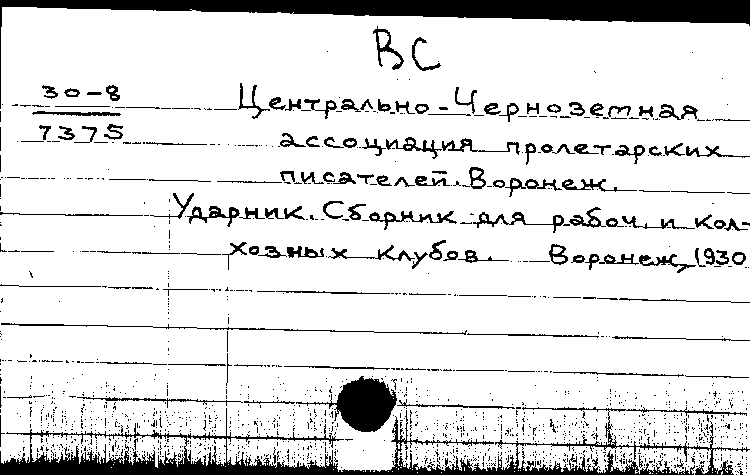 ВС
30-8
7375
Центрально-Черноземная
ассоциация пролетарских
писателей. Воронеж.
Ударник. Сборник для рабоч. и кол-
хозных клубов. Воронеж, 1930